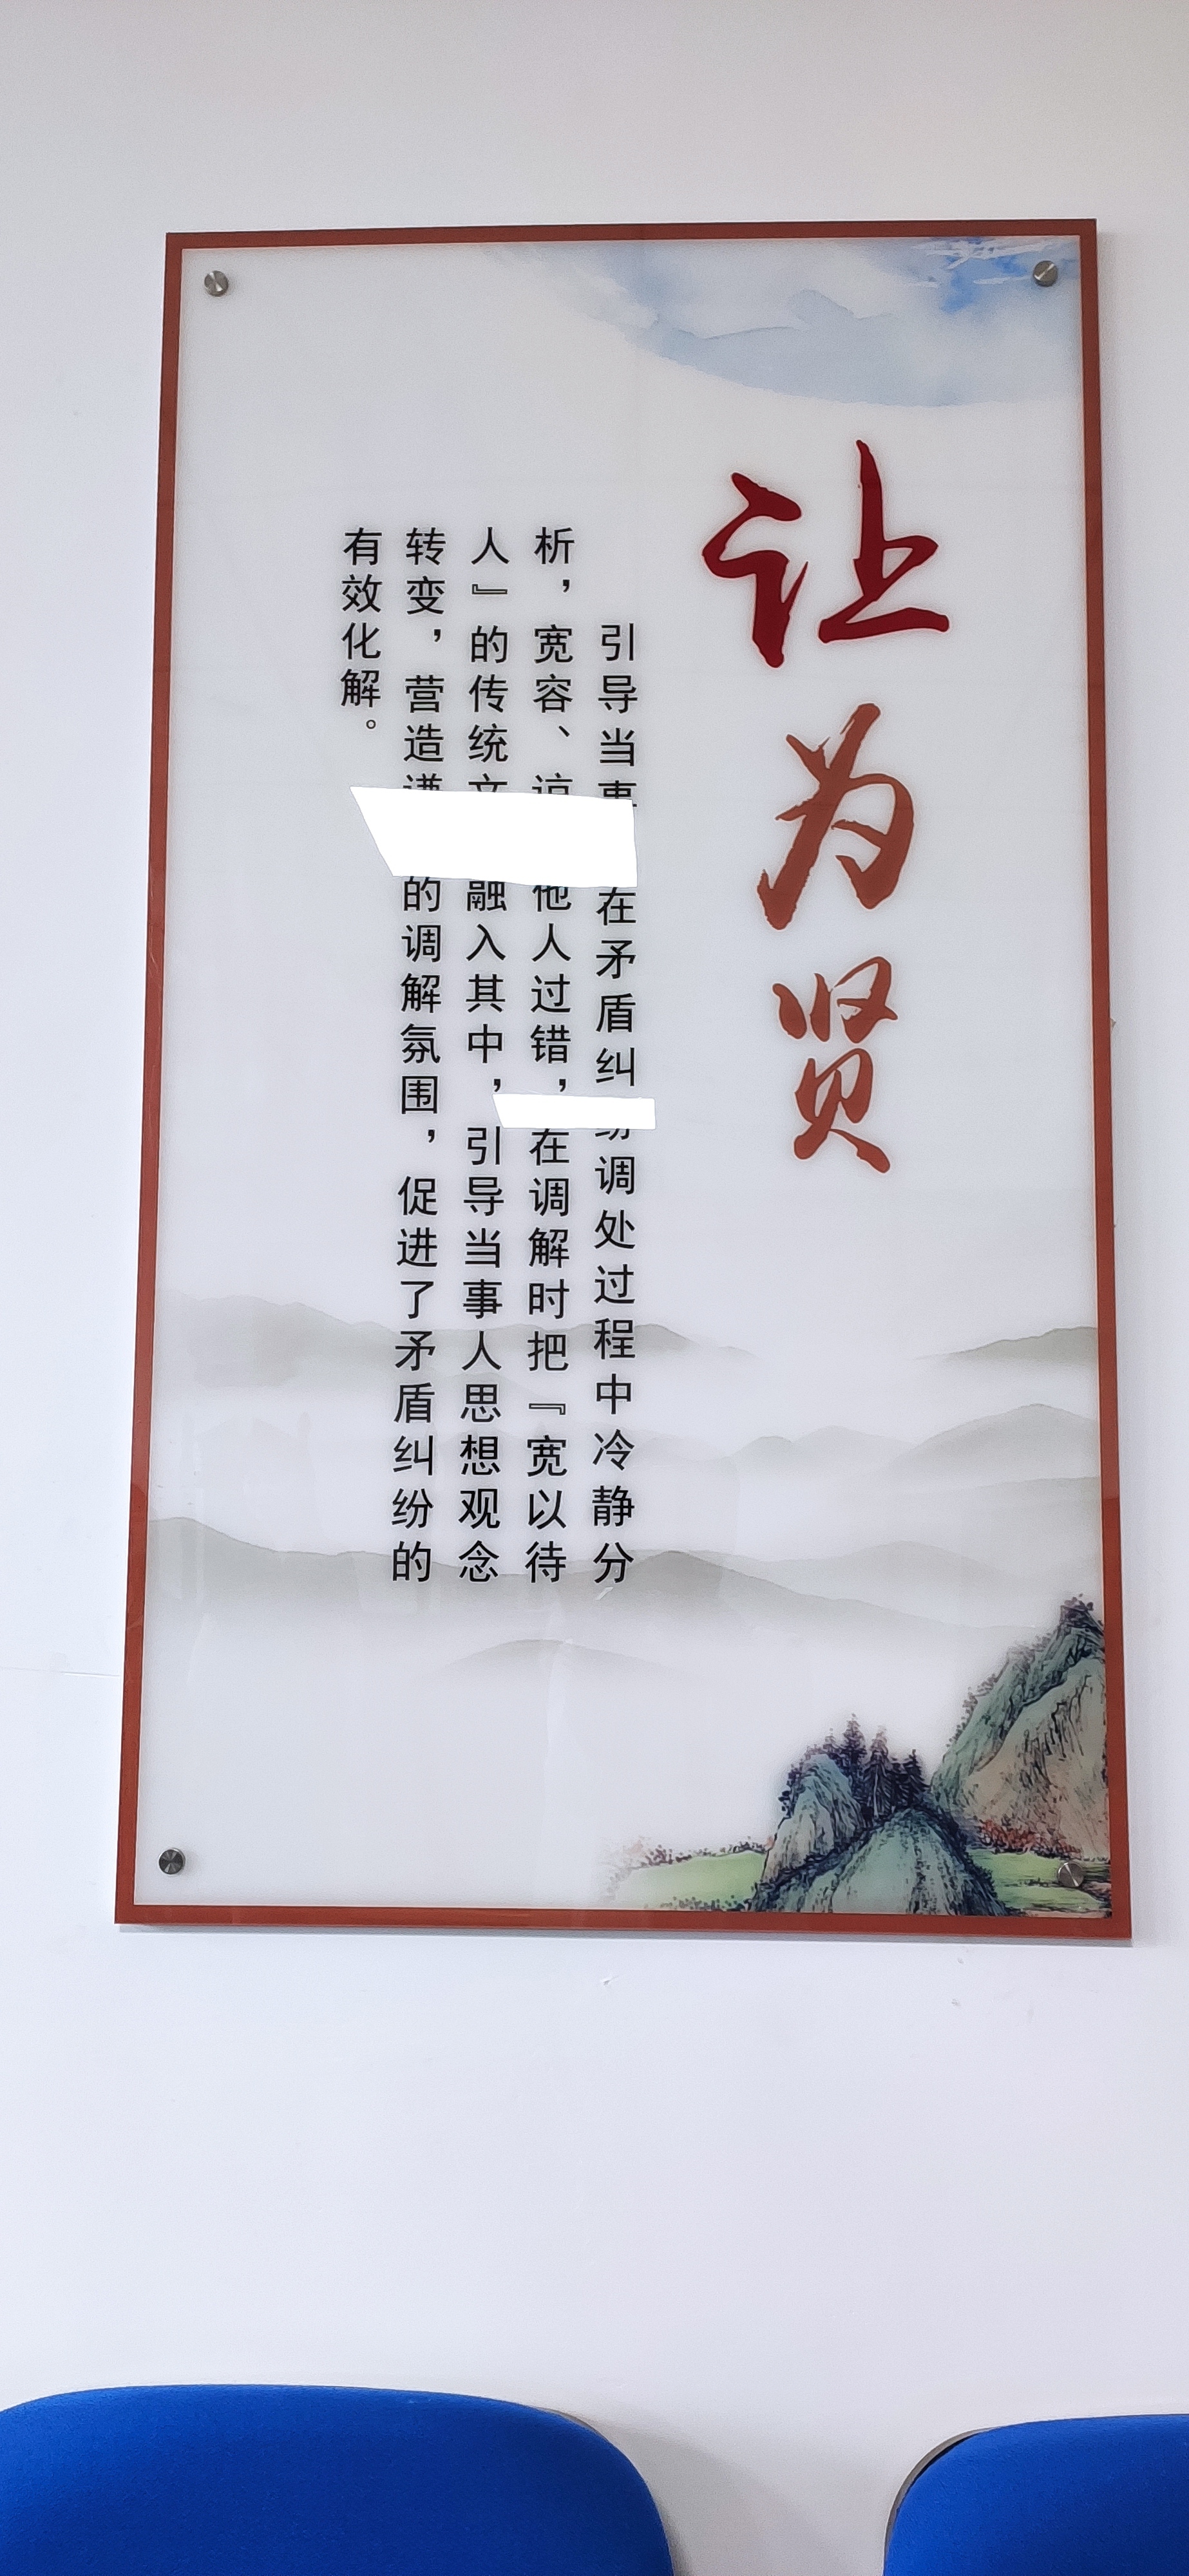 让为贤
引导当事在矛盾纠纷调处过程中冷静分
析，宽容、谅他人过错，在调解时把『宽以待
人』的传统文融入其中，引导当事人思想观念
转变，营造谦的调解氛围，促进了矛盾纠纷的
有效化解。